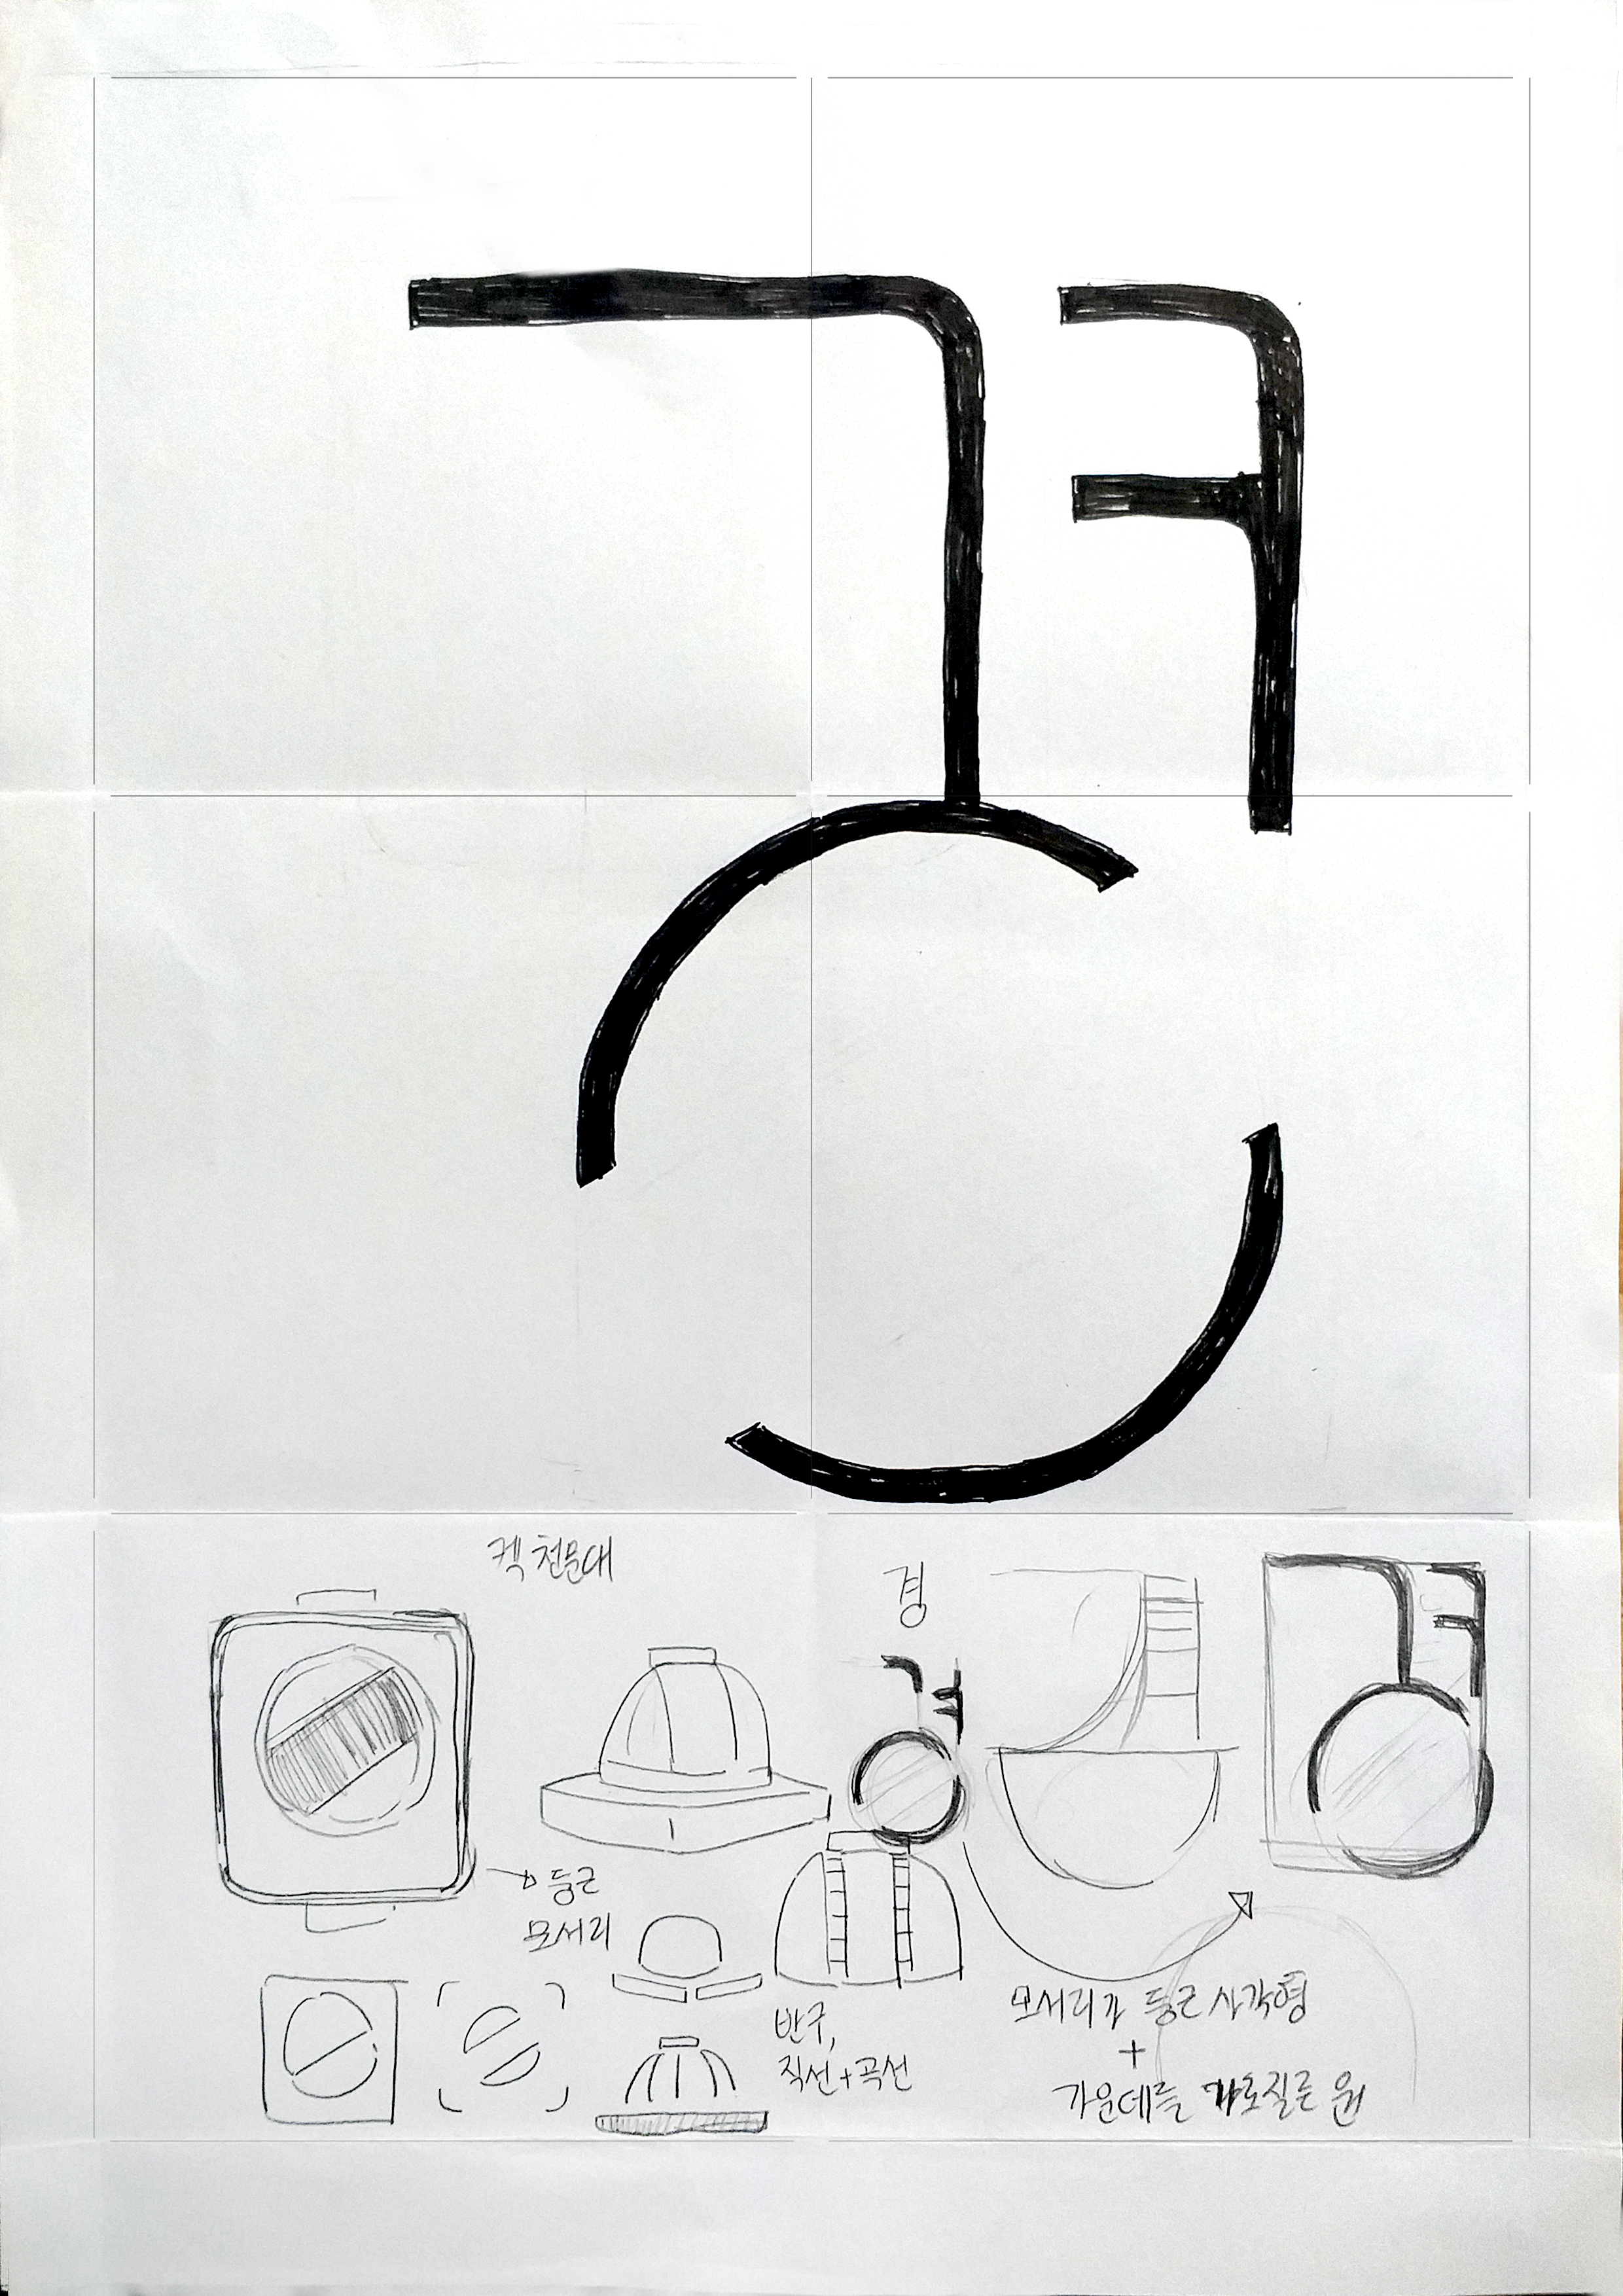 경
켁 천문대
경
둥근
모서리
반구,
직선+곡선
모서리가 둥근 사각형
+
가운데를 가로지른 원